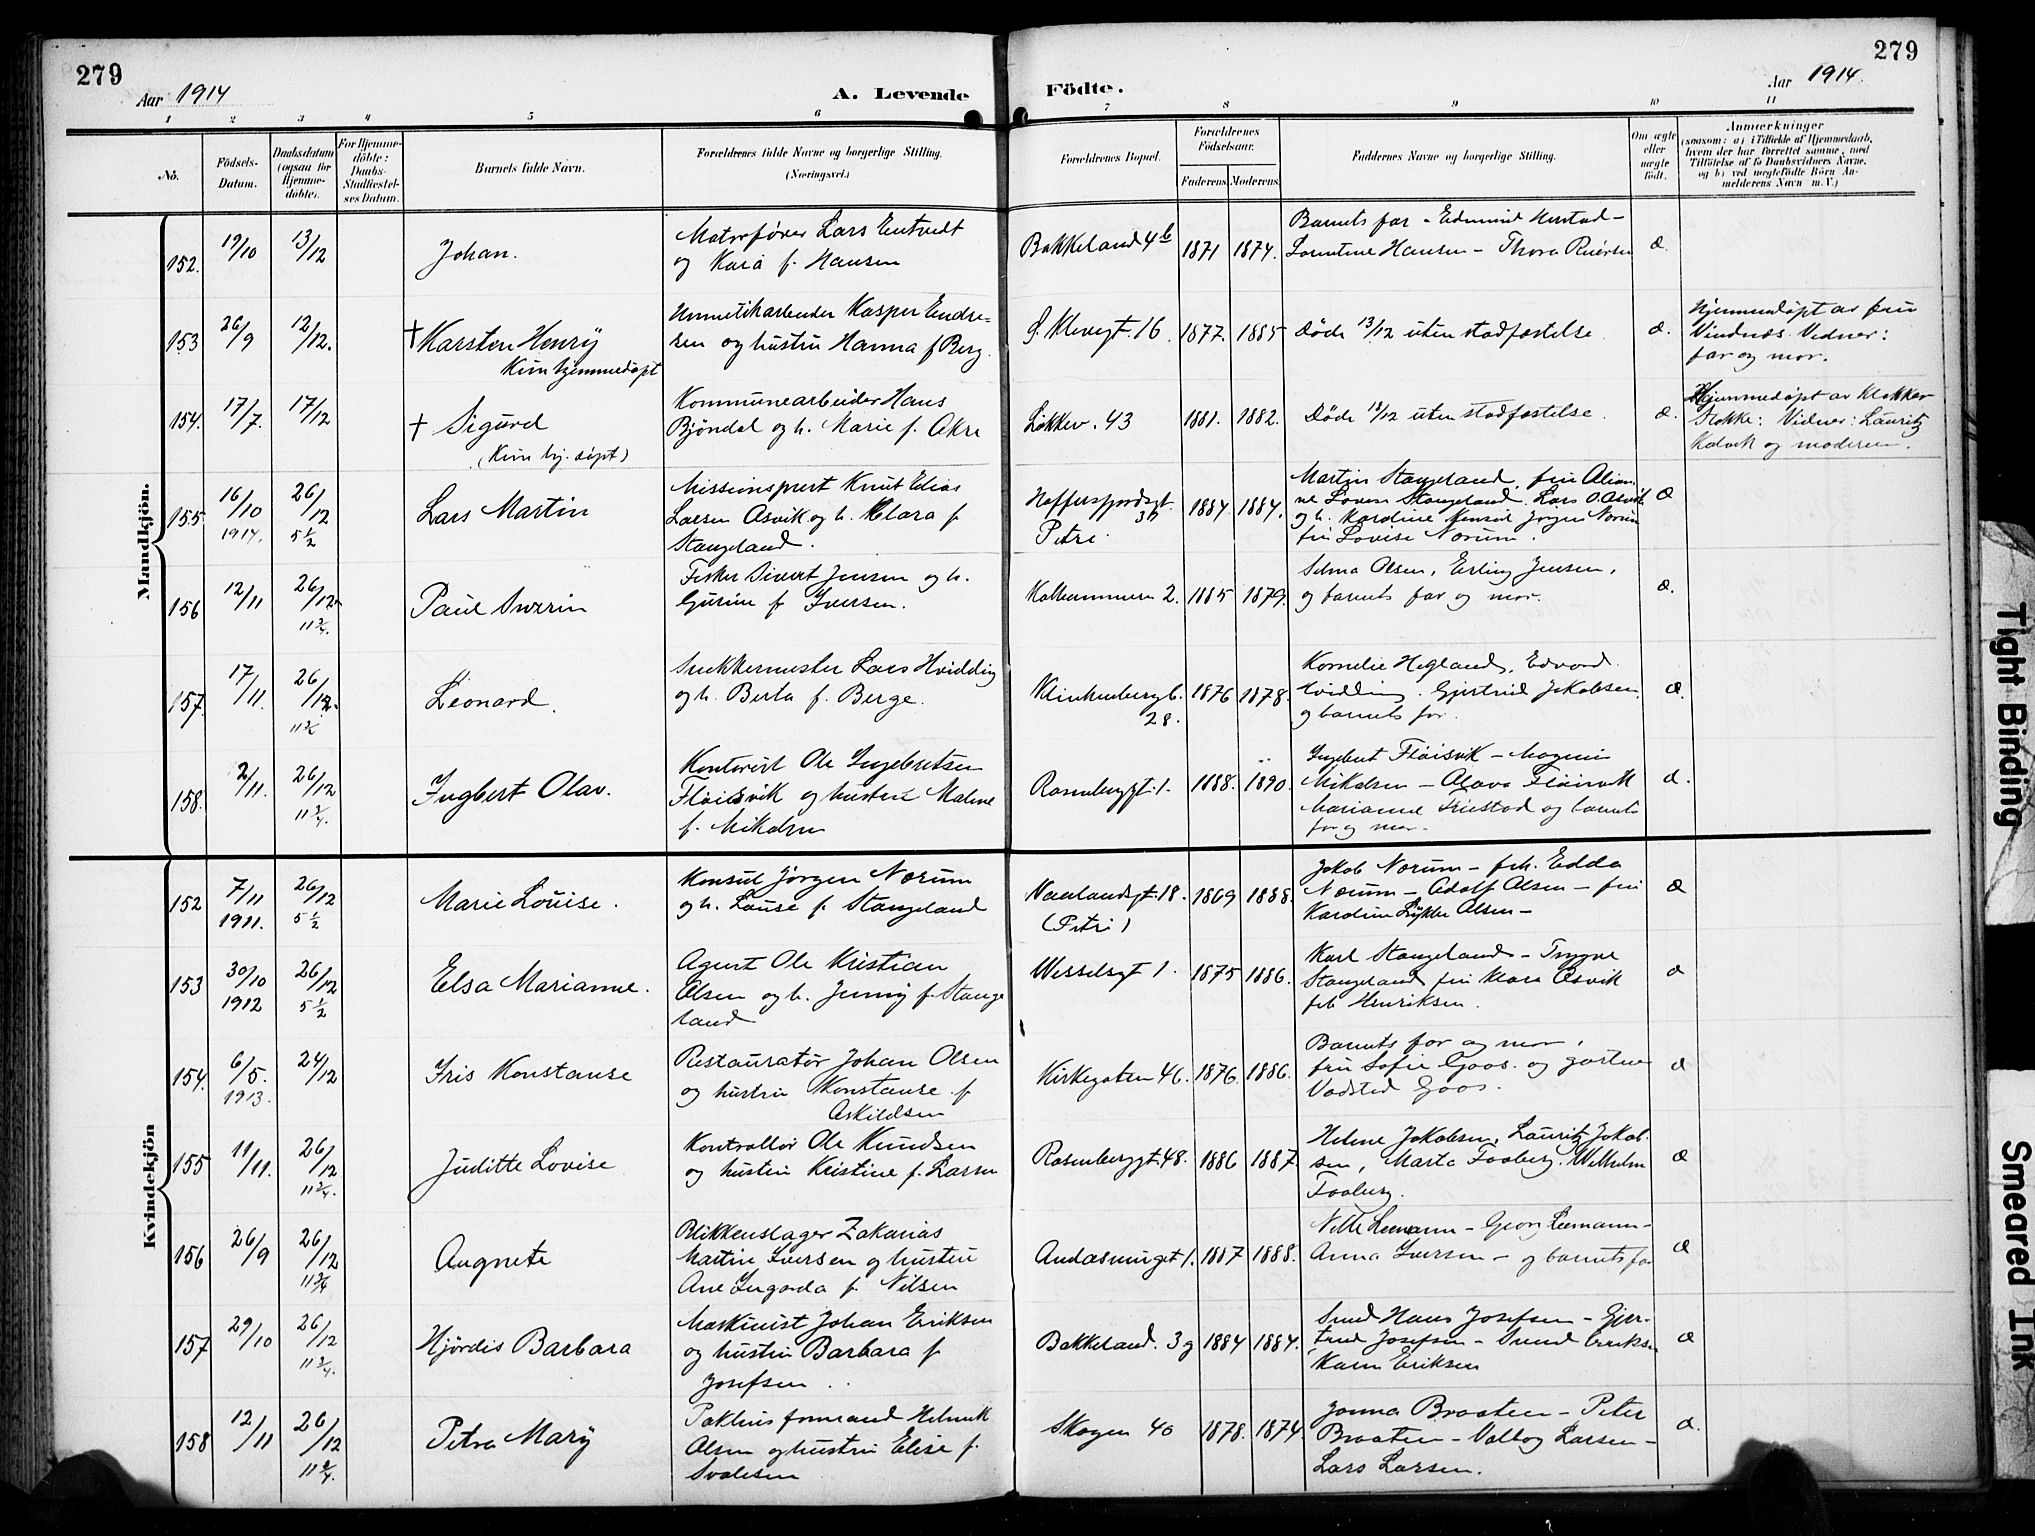 279
Aar 1914
A. Levende
Födte.
Aar 1914.
279
1 2 3 4 5 6 7 8 9 10 11
No.
Födsels-
Datum.
Daabsdatum
(ogsaa för
Hjemme-
döbte).
For Hjemme-
döbte:
Daabs-
Stadfæstel-
ses Datum.
Barnets fulde Navn.
Forældrenes fulde Navne og borgerlige Stilling.
(Næringsvei.)
Forældrenes Bopæl.
Forældrenes
Födselsaar.
Faderens. Moderens.
Faddernes Navne og borgerlige Stilling.
Om ægte
eller
uægte
födt.
Anmærkninger
(saasom: a) i Tilfælde af Hjemmedaab,
hvem der har forrettet samme, med
Tilföielse af to Daabsvidners Navne,
og b) ved uægtefödte Börn An-
melderens Navn m. V.)
Mandkjön.
152. 19/10 13/12 Johan.
Motorfører Lars Entvedt
og Kaia f. Hansen
Bakkeland 4b 1871 1874.
Barnets far - Edmund Herstad -
Lorentine Hansen - Thora Reiersen
Æ.
153 26/9 12/12. † Karsten Henry
Kun hjemmedøpt
Hermetikarbeider Kasper Endre-
sen og hustru Hanna f Berg.
S. Klevegt. 16 1877. 1885
Døde 13/12 uten stadfæstelse.
æ.
Hjemmedøpt av fru
Vindnæs. Vidner:
far og mor.
154. 17/7. 17/12 † Sigurd
(Kun hj. døpt)
Kommunearbeider Hans
Bjøndal og h. Marie f. Akre
Løkkev. 43 1881. 1882.
Døde 18/12 uten stadfæstelse.
æ.
Hjemmedøpt av klokker
Stokke: Vidner: Lauritz
Kalvik og moderen.
155 16/10 1914. 26/12 5 1/2 Lars Martin
Missionsprest Knut Elias
Larsen Asvik og h. Klara f
Stangeland.
Hafrsfjordsgt. 36
Petri. 1884. 1884.
Martin Stangeland, fru
Lovise Stangeland. Lars O. Asvik
og h. Karoline. Konsul Jørgen Nærum
fru Lovise Nærum.
Æ
156 12/11 26/12 11 3/4. Paul Sverin
Fisker Sivert Jensen og h.
Gurine f. Iversen.
Kalhammeren 2. 1885 1879.
Selma Olsen, Erling Jensen,
og barnets far og mor.
æ.
157. 17/11. 26/12. 11 3/4 Leonard.
Snekkermester Lars Hvidding
og h. Berta f. Berge.
Klinkenbergb. 28. 1876 1878.
Kornelie Hegland, Edvard
Hvidding. Gjertrud Jakobsen,
og barnets far.
æ.
158. 2/11. 26/12 11 3/4. Ingbert Olav.
Kontorist Ole Ingebretsen
Fløisvik og hustru Malene
f. Mikalsen
Rosenberggt. 1. 1888. 1890.
Ingebert Fløisvik - Magnus
Mikalsen - Olava Fløisvik
Marianne Friestad og barnets
far og mor.
Æ.
Kvindekjön
152 7/11 1911. 26/12 5 1/2 Marie Louise.
Konsul Jørgen Nærum
og h. Louise f. Stangeland
Vaalandsgt. 18.
(Petri) 1869 1888.
Jakob Nærum - frk. Edda
Nærum - Adolf Olsen - fru
Karoline Lykke Olsen -
Æ
153 30/10 1912 26/12 5 1/2 Elsa Marianne.
Agent Ole Kristian
Olsen og h. Jenny f. Stange
land
Wesselsgt 1. 1875 1886.
Karl Stangeland - Trygve
Stangeland fru Klara Asvik
frk Henriksen.
Æ
154. 6/5. 1913. 24/12 Iris Konstanse
Restauratør Johan Olsen
og hustru Konstanse f
Askildsen
Kirkegaten 46. 1876. 1886.
Barnets far og mor,
fru Sofie Goos. og gartner
Vadsted Goos.
Æ
155 11/11. 26/12 11 3/4. Juditte Lovise
Kontrollør Ole Knudsen
og hustru Kristine f. Larsen
Rosenberggt. 48. 1886 1887.
Helene Jakobsen, Lauritz Jakob-
sen, Marta Faaberg. Wilhelm
Faaberg.
Æ
156 26/9 26/12 11 3/4 Augnete
Blikkenslager Zakarias
Martin Iversen og hustru
Ane Ingarda f. Nilsen
Andasmuget 1. 1887 1888.
Nelle Leemann - Georg Leemann -
Anna Iversen - og barnets far
Æ
157 29/10 26/12 11 3/4. Hjørdis Barbara
Maskinist Johan Eriksen
og hustru Barbara f
Josefsen.
Bakkeland. 3g 1884 1884.
Smed Hans Josefsen - Gjer-
trud Josefsen - Svend Eriksen
Karen Eriksen
Æ
158 12/11 26/12 11 3/4. Petra Mary
Pakhusformand Helmik
Olsen og hustru Elise f.
Svalesen
Skagen 40 1878. 1874.
Jonna Braaten - Peter
Braaten - Valbog Larsen -
Lars Larsen.
Æ.
Tight Binding
Smeared Ink